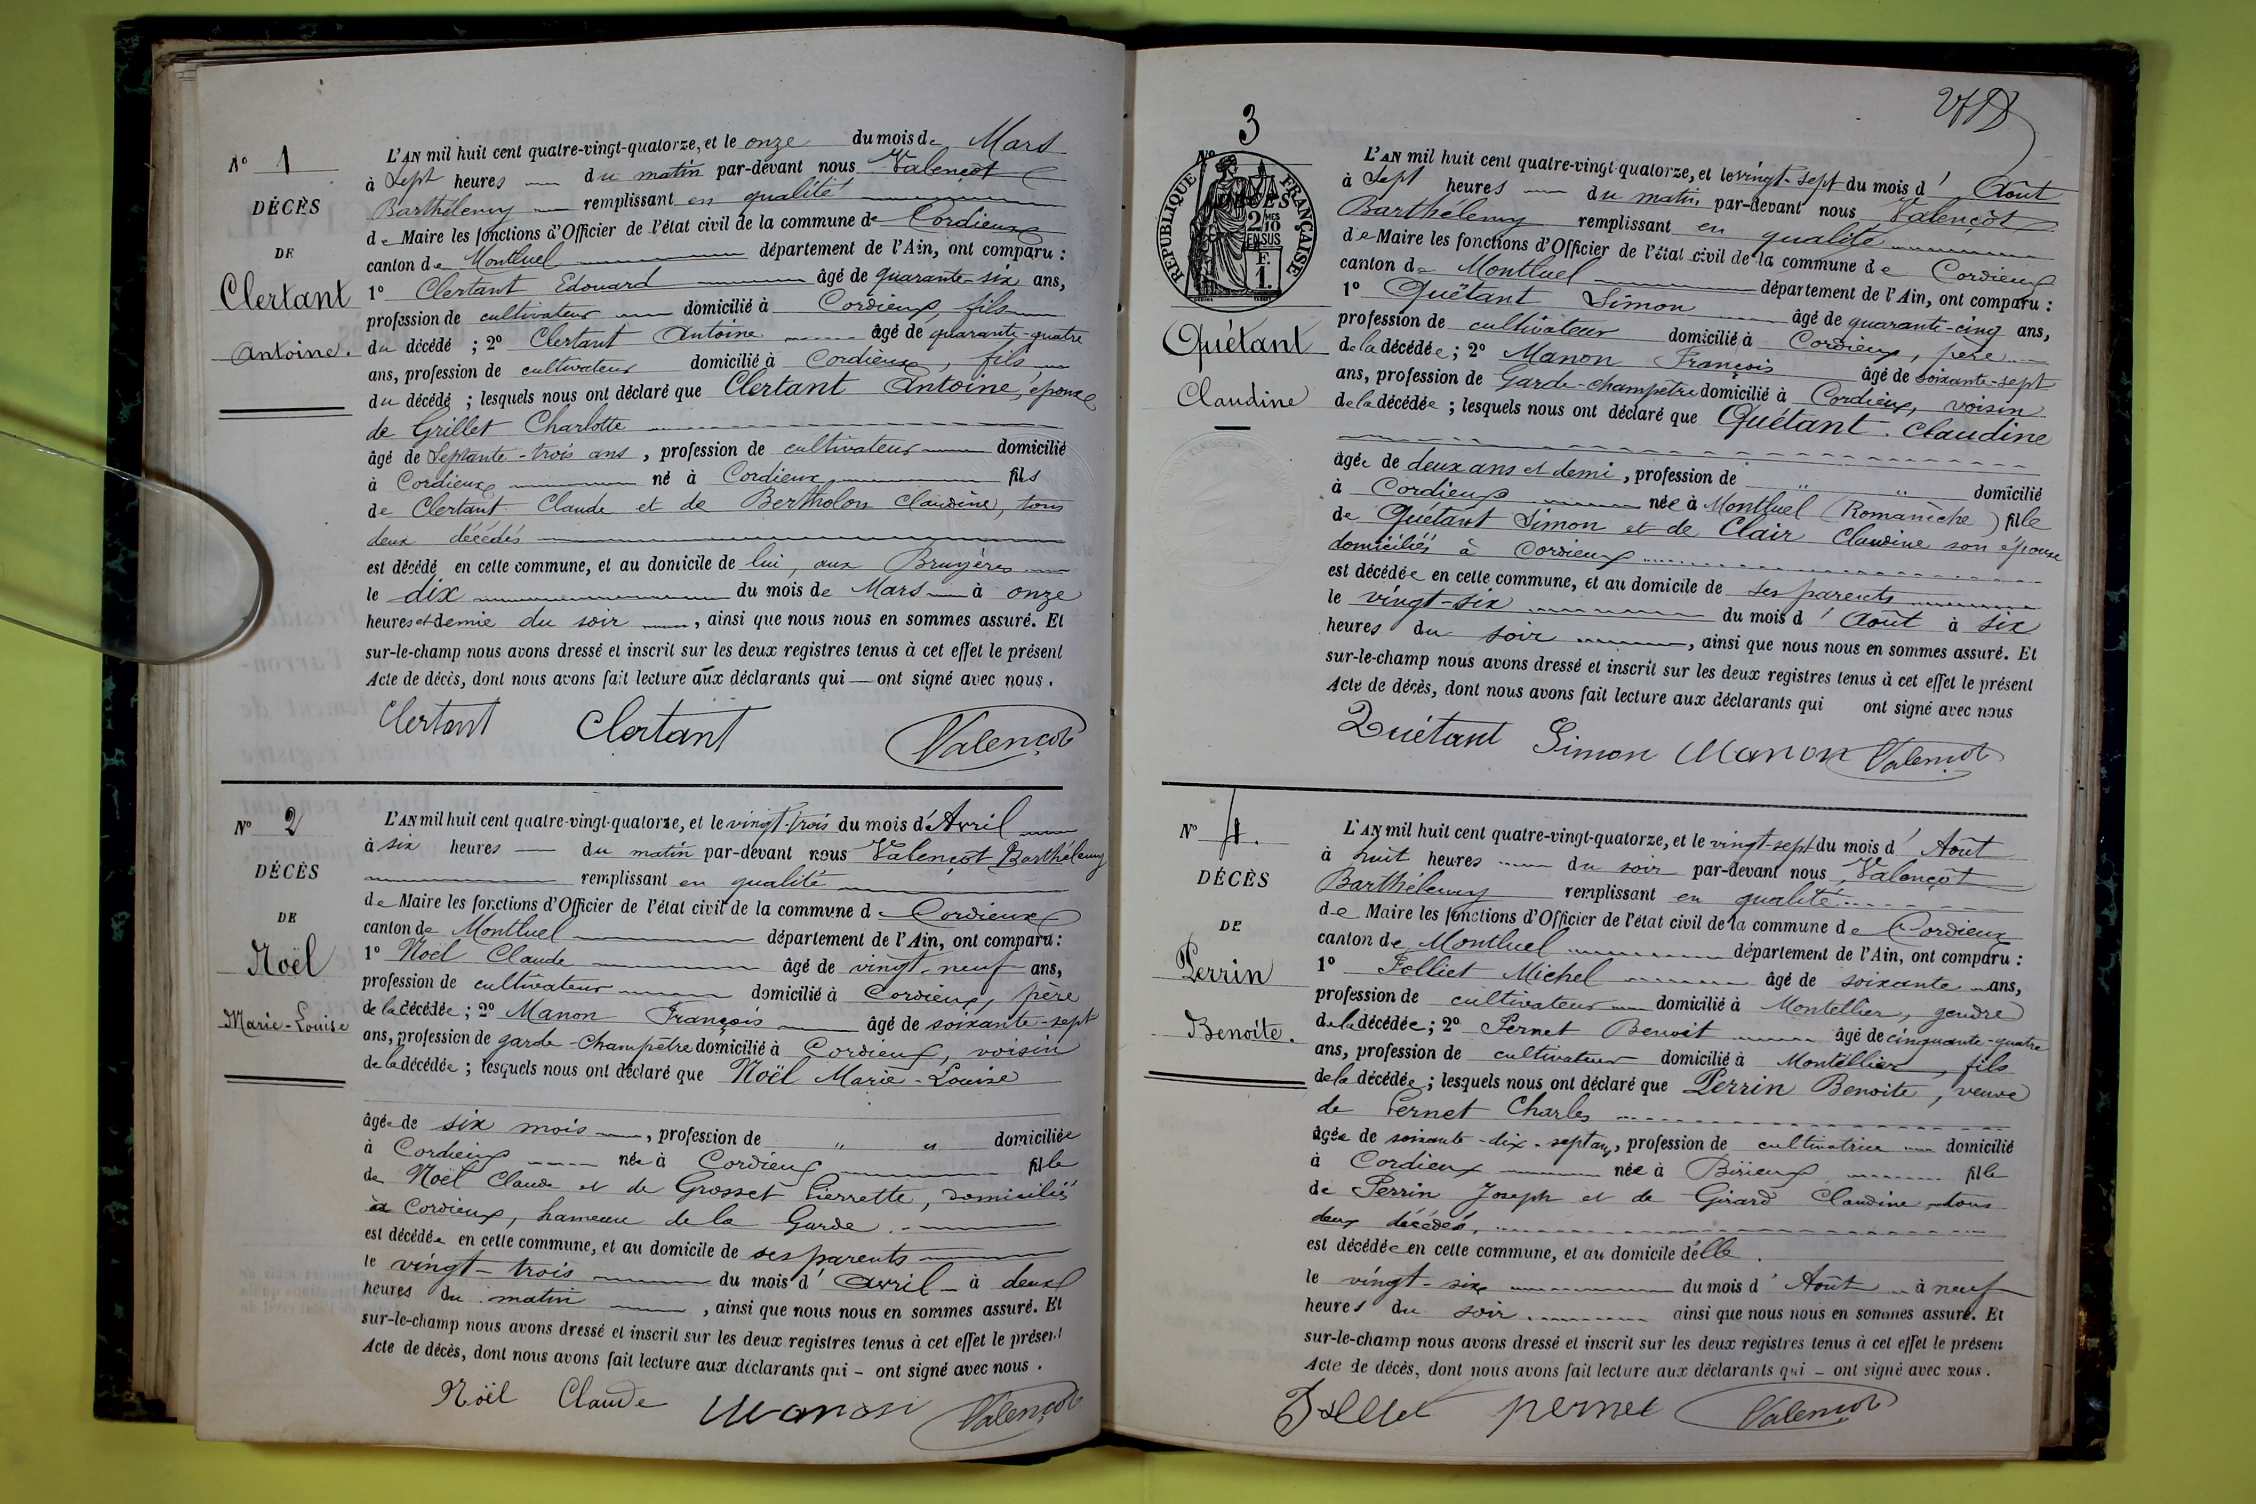 N° 1
DÉCÈS
DE
Clertant
Antoine.
L'AN mil huit cent quatre-vingt-quatorze, et le onze du mois de Mars
à Sept heures du matin par-devant nous Valençot
Barthélemy remplissant en qualité
de Maire les fonctions d'Officier de l'état civil de la commune de Cordieux
canton de Montluel département de l'Ain, ont comparu :
1° Clertant Edouard âgé de quarante-six ans,
profession de cultivateur domicilié à Cordieux, fils
du décédé ; 2° Clertant Antoine âgé de quarante-quatre
ans, profession de cultivateur domicilié à Cordieux, fils
du décédé ; lesquels nous ont déclaré que Clertant Antoine, époux
de Grillet Charlotte
âgé de Septante-trois ans, profession de cultivateur domicilié
à Cordieux né à Cordieux fils
de Clertant Claude et de Bertholon Claudine, tous
deux décédés
est décédé en cette commune, et au domicile de lui, aux Bruyères
le dix du mois de Mars à onze
heures et demie du soir, ainsi que nous nous en sommes assuré. Et
sur-le-champ nous avons dressé et inscrit sur les deux registres tenus à cet effet le présent
Acte de décès, dont nous avons fait lecture aux déclarants qui — ont signé avec nous.
Clertant Clertant Valençot
N° 2
DÉCÈS
DE
Noël
Marie-Louise
L'AN mil huit cent quatre-vingt-quatorze, et le vingt-trois du mois d'Avril
à six heures — du matin par-devant nous Valençot Barthélemy
remplissant en qualité
de Maire les fonctions d'Officier de l'état civil de la commune de Cordieux
canton de Montluel département de l'Ain, ont comparu :
1° Noël Claude âgé de vingt-neuf ans,
profession de cultivateur domicilié à Cordieux, père
de la décédée ; 2° Manon François âgé de soixante-sept
ans, profession de garde-champêtre domicilié à Cordieux, voisin
de la décédée ; lesquels nous ont déclaré que Noël Marie-Louise
âgée de six mois, profession de " " domiciliée
à Cordieux née à Cordieux fille
de Noël Claude et de Grosset Pierrette, domiciliés
à Cordieux, hameau de la Garde.
est décédée en cette commune, et au domicile de ses parents
le vingt-trois du mois d'avril à deux
heures du matin, ainsi que nous nous en sommes assuré. Et
sur-le-champ nous avons dressé et inscrit sur les deux registres tenus à cet effet le présent
Acte de décès, dont nous avons fait lecture aux déclarants qui – ont signé avec nous.
Noël Claude Manon Valençot
3
N°
RÉPUBLIQUE FRANÇAISE
2/10 MES
EN SUS
F.
1.
Quétant
Claudine
L'AN mil huit cent quatre-vingt-quatorze, et le vingt-sept du mois d'Août
à Sept heures du matin par-devant nous Valençot
Barthélemy remplissant en qualité
de Maire les fonctions d'Officier de l'état civil de la commune de Cordieux
canton de Montluel département de l'Ain, ont comparu :
1° Quétant Simon âgé de quarante-cinq ans,
profession de cultivateur domicilié à Cordieux, père
de la décédée ; 2° Manon François âgé de soixante-sept
ans, profession de Garde-champêtre domicilié à Cordieux, voisin
de la décédée ; lesquels nous ont déclaré que Quétant Claudine
âgée de deux ans et demi, profession de " " domicilié
à Cordieux née à Montluel (Romanèche) fille
de Quétant Simon et de Clair Claudine son épouse
domiciliés à Cordieux
est décédée en cette commune, et au domicile de ses parents
le vingt-six du mois d'Août à six
heures du soir, ainsi que nous nous en sommes assuré. Et
sur-le-champ nous avons dressé et inscrit sur les deux registres tenus à cet effet le présent
Acte de décès, dont nous avons fait lecture aux déclarants qui ont signé avec nous
Quétant Simon Manon Valençot
N° 4.
DÉCÈS
DE
Perrin
Benoite.
L'AN mil huit cent quatre-vingt-quatorze, et le vingt-sept du mois d'Août
à huit heures du soir par-devant nous Valençot
Barthélemy remplissant en qualité
de Maire les fonctions d'Officier de l'état civil de la commune de Cordieux
canton de Montluel département de l'Ain, ont comparu :
1° Folliet Michel âgé de soixante ans,
profession de cultivateur domicilié à Montellier, gendre
de la décédée ; 2° Pernet Benoit âgé de cinquante-quatre
ans, profession de cultivateur domicilié à Montellier, fils
de la décédée ; lesquels nous ont déclaré que Perrin Benoite, veuve
de Pernet Charles
âgée de soixante-dix-sept ans, profession de cultivatrice domicilié
à Cordieux née à Birieux fille
de Perrin Joseph et de Girard Claudine tous
deux décédés,
est décédée en cette commune, et au domicile d'elle.
le vingt-six du mois d'Août à neuf
heures du soir ainsi que nous nous en sommes assuré. Et
sur-le-champ nous avons dressé et inscrit sur les deux registres tenus à cet effet le présent
Acte de décès, dont nous avons fait lecture aux déclarants qui – ont signé avec nous.
Folliet pernet Valençot